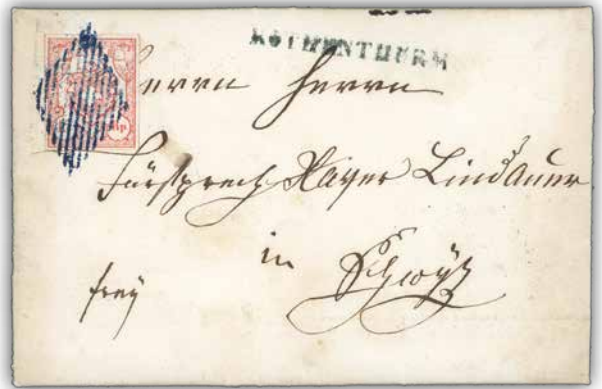 ROTHENTHURM
Herrn Herrn
Fürsprech Mayer Lindauer
in Schwÿz
frey
Rp